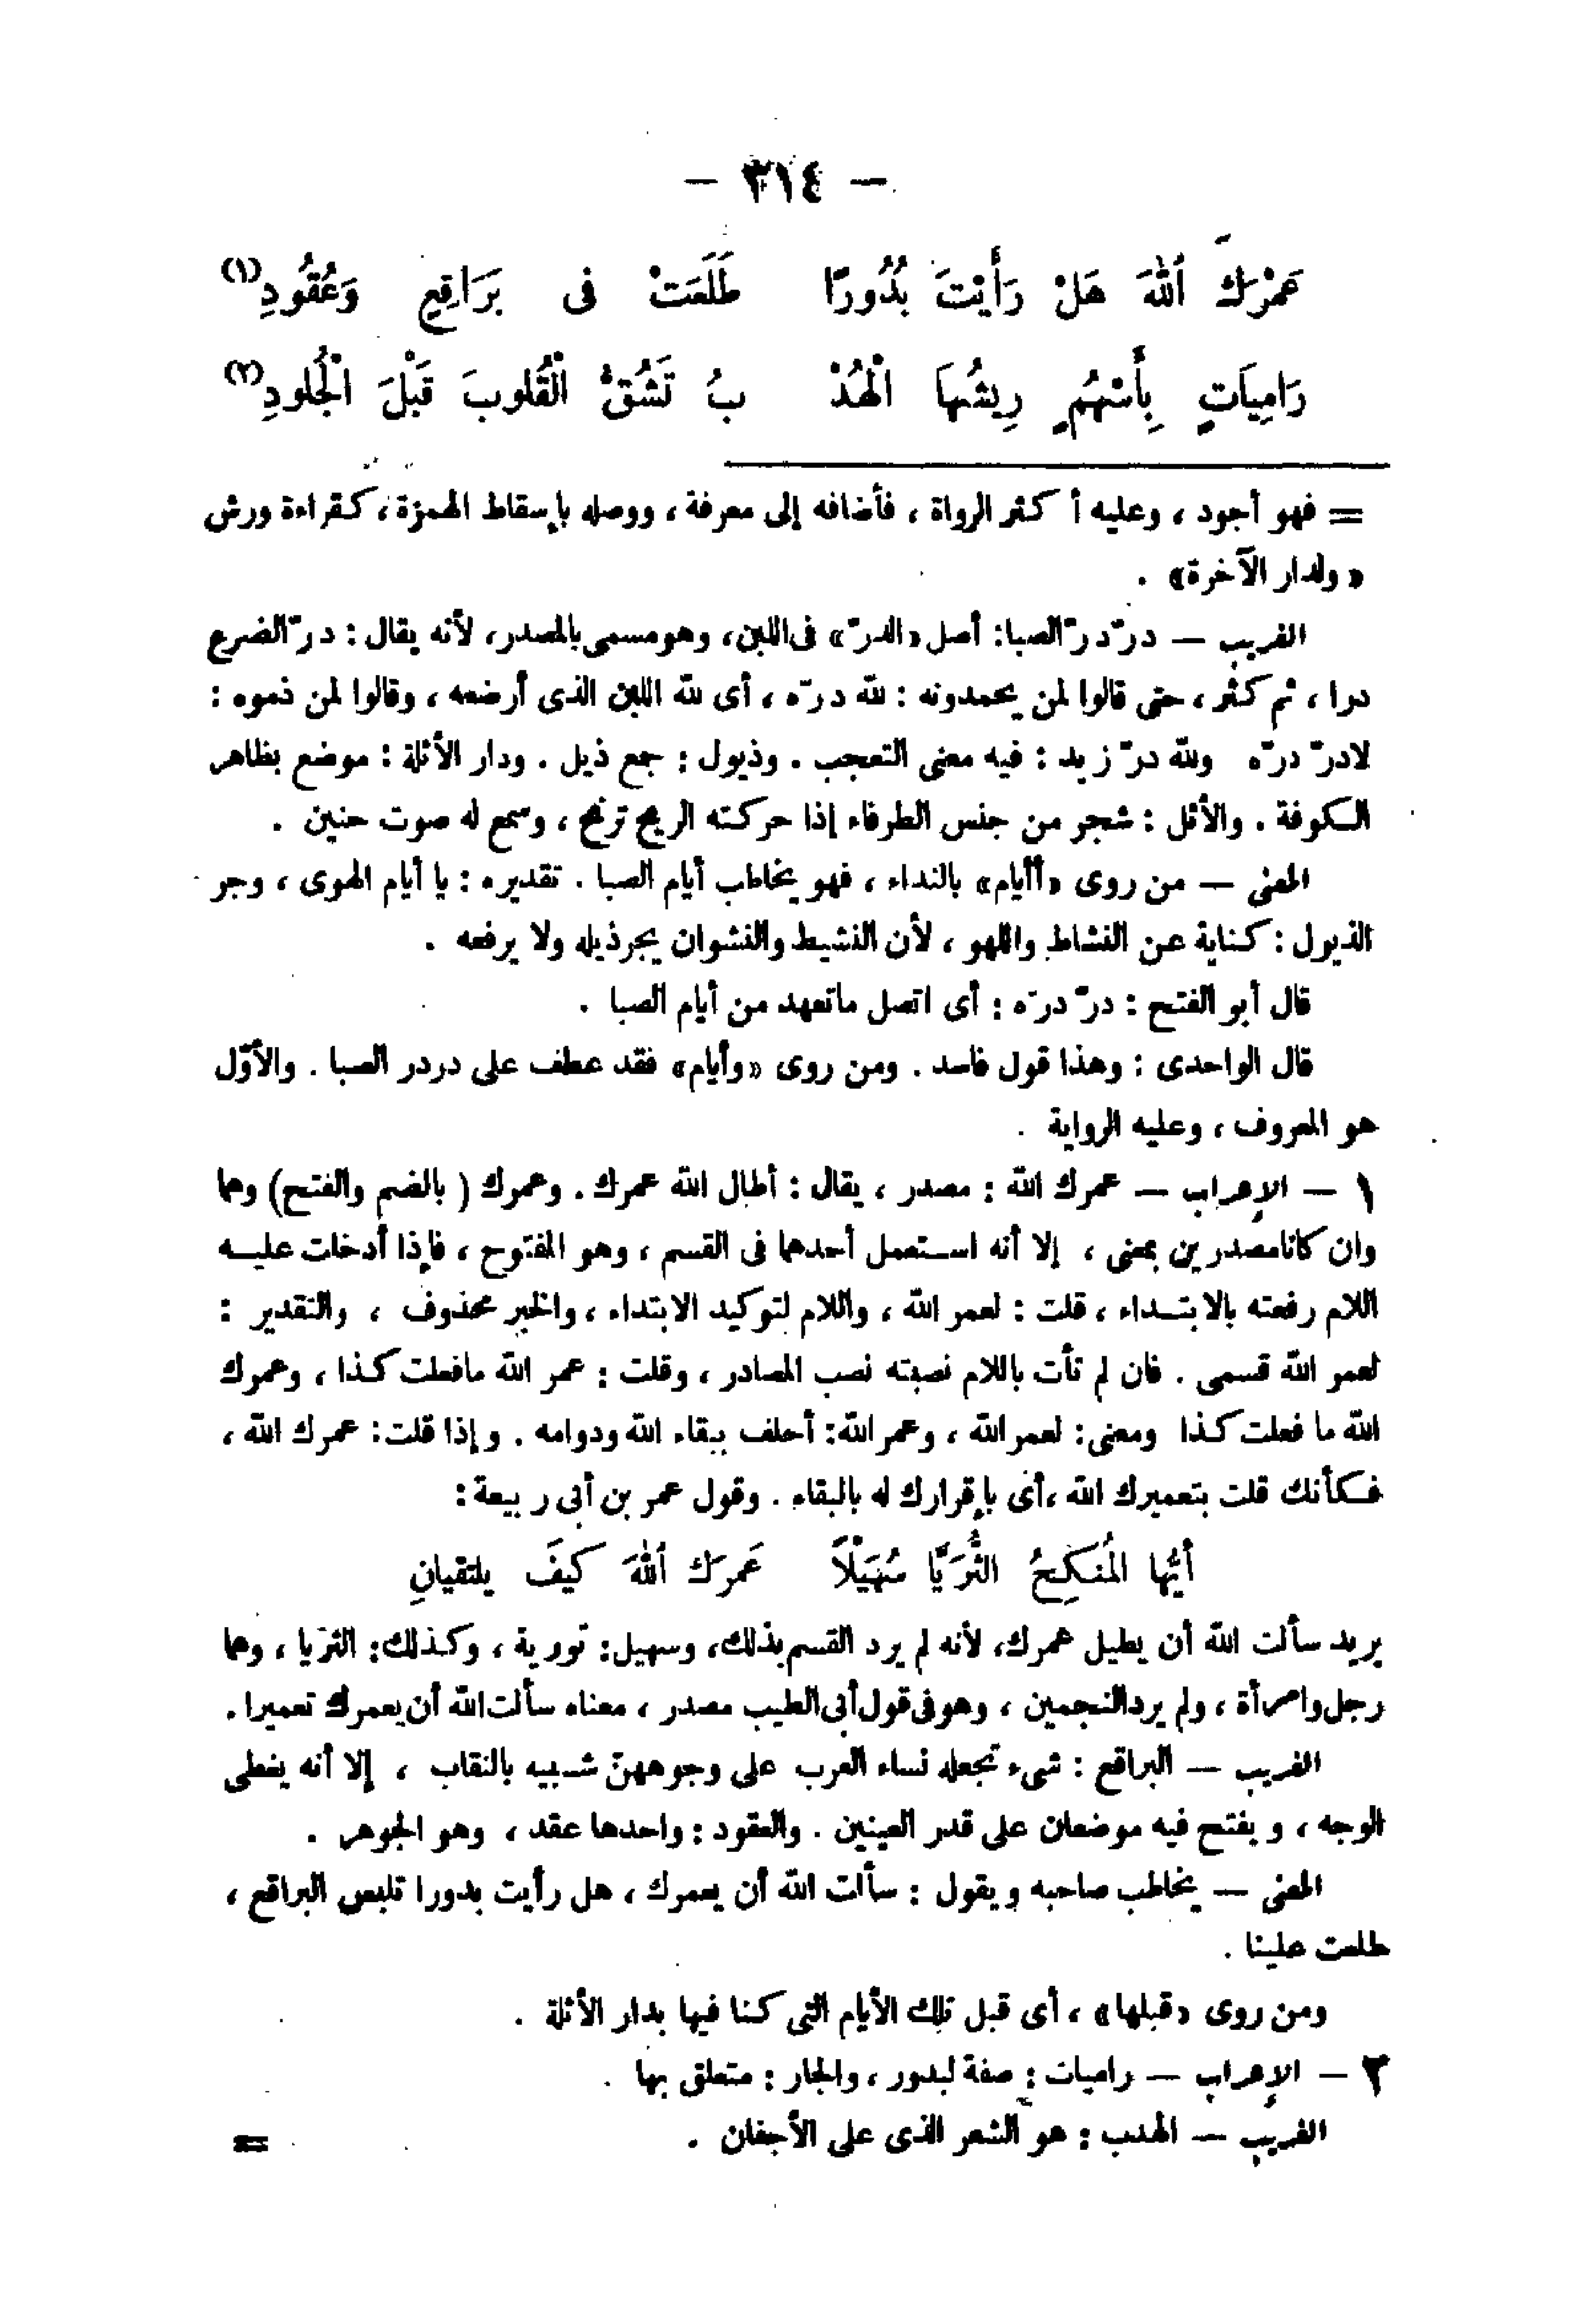 — ٣١٤ —
عَمْرَكَ ٱللّٰهَ هَلْ رَأَيْتَ بُدُورًا طَلَعَتْ فى بَرَاقِعٍ وَعُقُودِ(١)
رَامِيَاتٍ بِأَسْهُمٍ رِيشُهَا الْهُدْ بُ تَشُقُّ الْقُلوبَ قَبْلَ الْجُلودِ(٢)
= فهو أجود ، وعليه أكثر الرواة ، فأضافه إلى معرفة ، ووصله بإسقاط الهمزة ، كقراءة ورش
« ولدار الآخرة» .
الغريب — درّ درّ الصبا: أصل «الدرّ» فى اللبن، وهو مسمى بالمصدر، لأنه يقال : درّ الضرع
درا ، ثم كثر ، حتى قالوا لمن يحمدونه : لله درّه ، أى لله اللبن الذى أرضعه ، وقالوا لمن ذموه :
لادرّ درّه ولله درّ زيد : فيه معنى التعجب . وذيول : جمع ذيل . ودار الأثلة : موضع بظاهر
الكوفة . والأثل : شجر من جنس الطرفاء إذا حركته الريح ترنح ، وسمع له صوت حنين .
المعنى — من روى «أأيام» بالنداء ، فهو يخاطب أيام الصبا . تقديره : يا أيام الهوى ، وجر
الذيول : كناية عن النشاط واللهو ، لأن النشيط والنشوان يجر ذيله ولا يرفعه .
قال أبو الفتح : درّ درّه : أى اتصل ماتعهد من أيام الصبا .
قال الواحدى : وهذا قول فاسد . ومن روى «وأيام» فقد عطف على دردر الصبا . والأوّل
هو المعروف ، وعليه الرواية .
١ — الإعراب — عمرك الله : مصدر ، يقال : أطال الله عمرك . وعمرك ( بالضم والفتح) وهما
وان كانا مصدرين بمعنى ، إلا أنه استعمل أحدهما فى القسم ، وهو المفتوح ، فإذا أدخلت عليه
اللام رفعته بالابتداء ، قلت : لعمر الله ، واللام لتوكيد الابتداء ، والخبر محذوف ، والتقدير :
لعمر الله قسمى . فان لم تأت باللام نصبته نصب المصادر ، وقلت : عمر الله مافعلت كذا ، وعمرك
الله ما فعلت كذا ومعنى: لعمر الله ، وعمر الله: أحلف ببقاء الله ودوامه . وإذا قلت: عمرك الله ،
فكأنك قلت بتعميرك الله ،أى بإقرارك له بالبقاء . وقول عمر بن أبى ربيعة :
أيُّها المُنكِحُ الثُّرَيَّا سُهَيْلاً عَمرَك ٱللّٰهَ كيفَ يلتقيانِ
يريد سألت الله أن يطيل عمرك، لأنه لم يرد القسم بذلك، وسهيل: تورية ، وكذلك: الثريا ، وهما
رجل وامرأة ، ولم يرد النجمين ، وهو فى قول أبى الطيب مصدر ، معناه سألت الله أن يعمرك تعميرا .
الغريب — البراقع : شىء تجعله نساء العرب على وجوههنّ شبيه بالنقاب ، إلا أنه يغطى
الوجه ، ويفتح فيه موضعان على قدر العينين . والعقود : واحدها عقد ، وهو الجوهر .
المعنى — يخاطب صاحبه ويقول : سألت الله أن يعمرك ، هل رأيت بدورا تلبس البراقع ،
طلعت علينا .
ومن روى «قبلها» ، أى قبل تلك الأيام التى كنا فيها بدار الأثلة .
٢ — الإعراب — راميات : صفة لبدور ، والجار : متعلق بها .
الغريب — الهدب : هو الشعر الذى على الأجفان . =